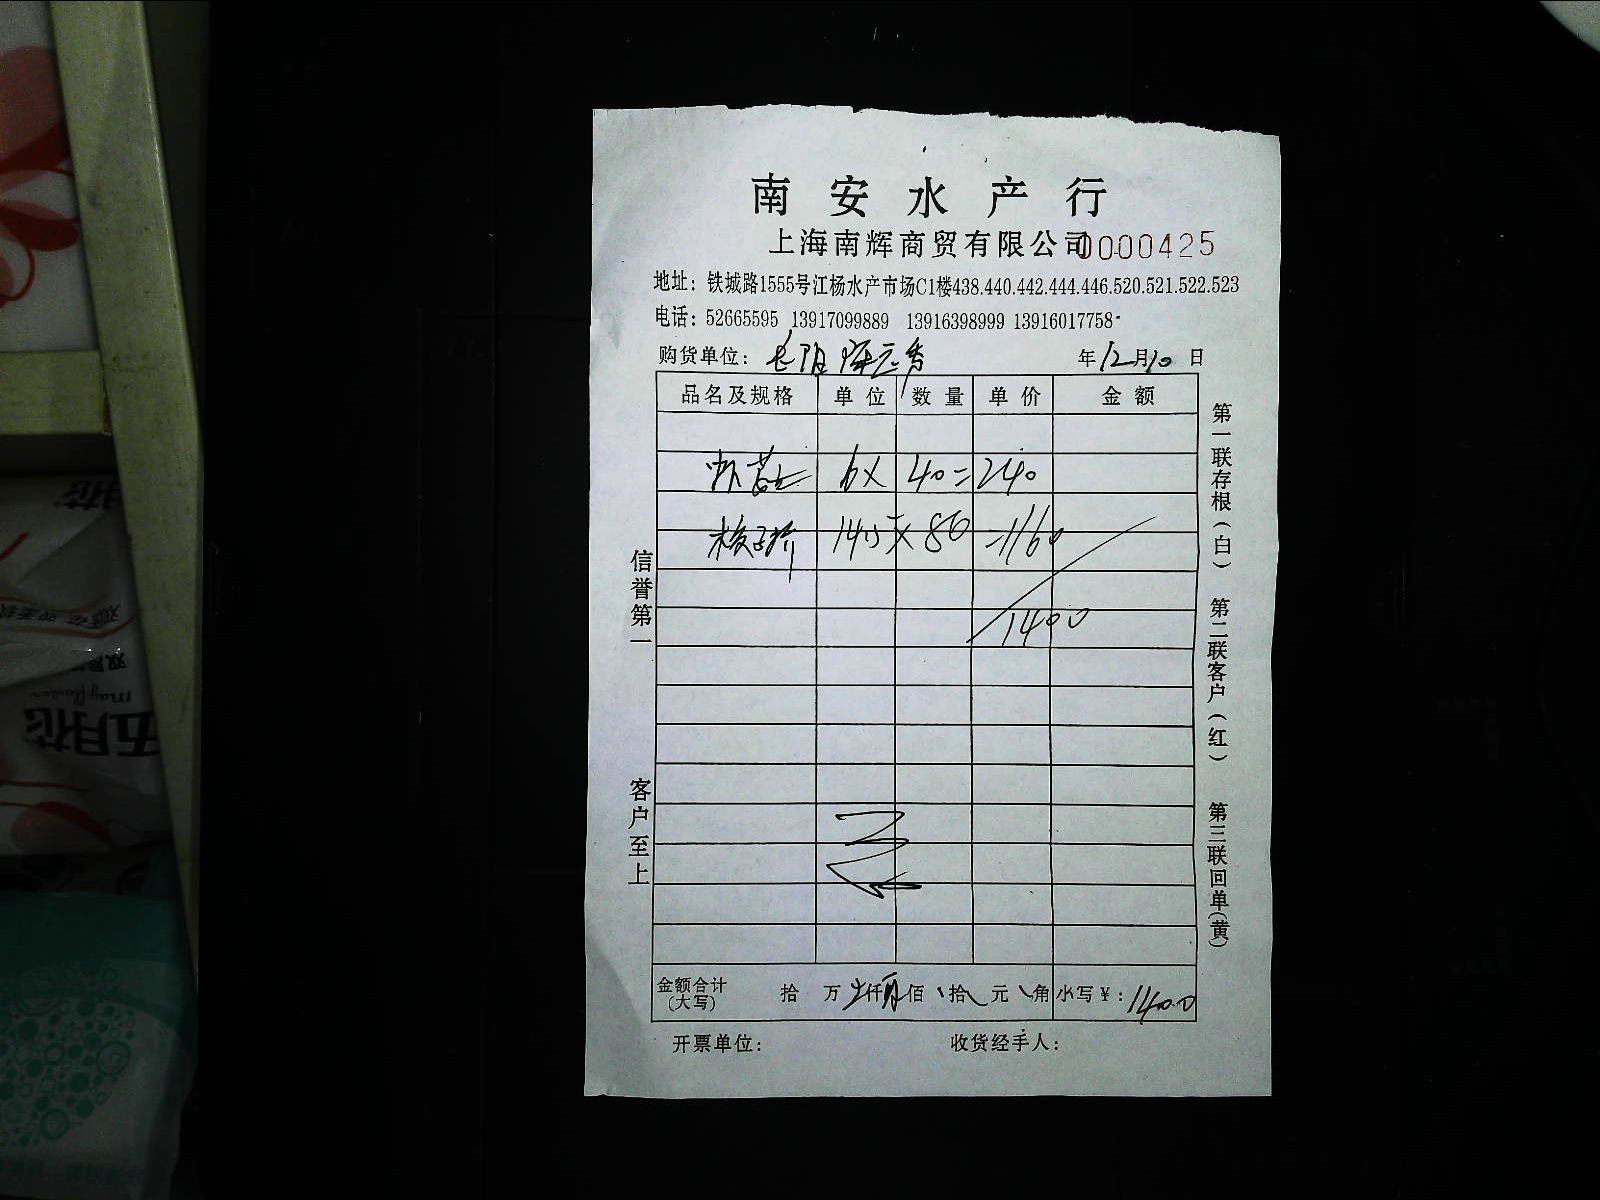 南安水产行
上海南辉商贸有限公司 0000425
地址：铁城路1555号江杨水产市场C1楼438.440.442.444.446.520.521.522.523
电话：52665595 13917099889 13916398999 13916017758
购货单位： 年12月10日
品名及规格 单位 数量 单价 金额
6× 40=240
14.5× 80 =1160
1400
信誉第一
客户至上
第一联存根(白)
第二联客户(红)
第三联回单(黄)
金额合计(大写) 拾 万 仟 佰 拾 元 角 小写¥：1400
开票单位： 收货经手人：
五月花
mayflower